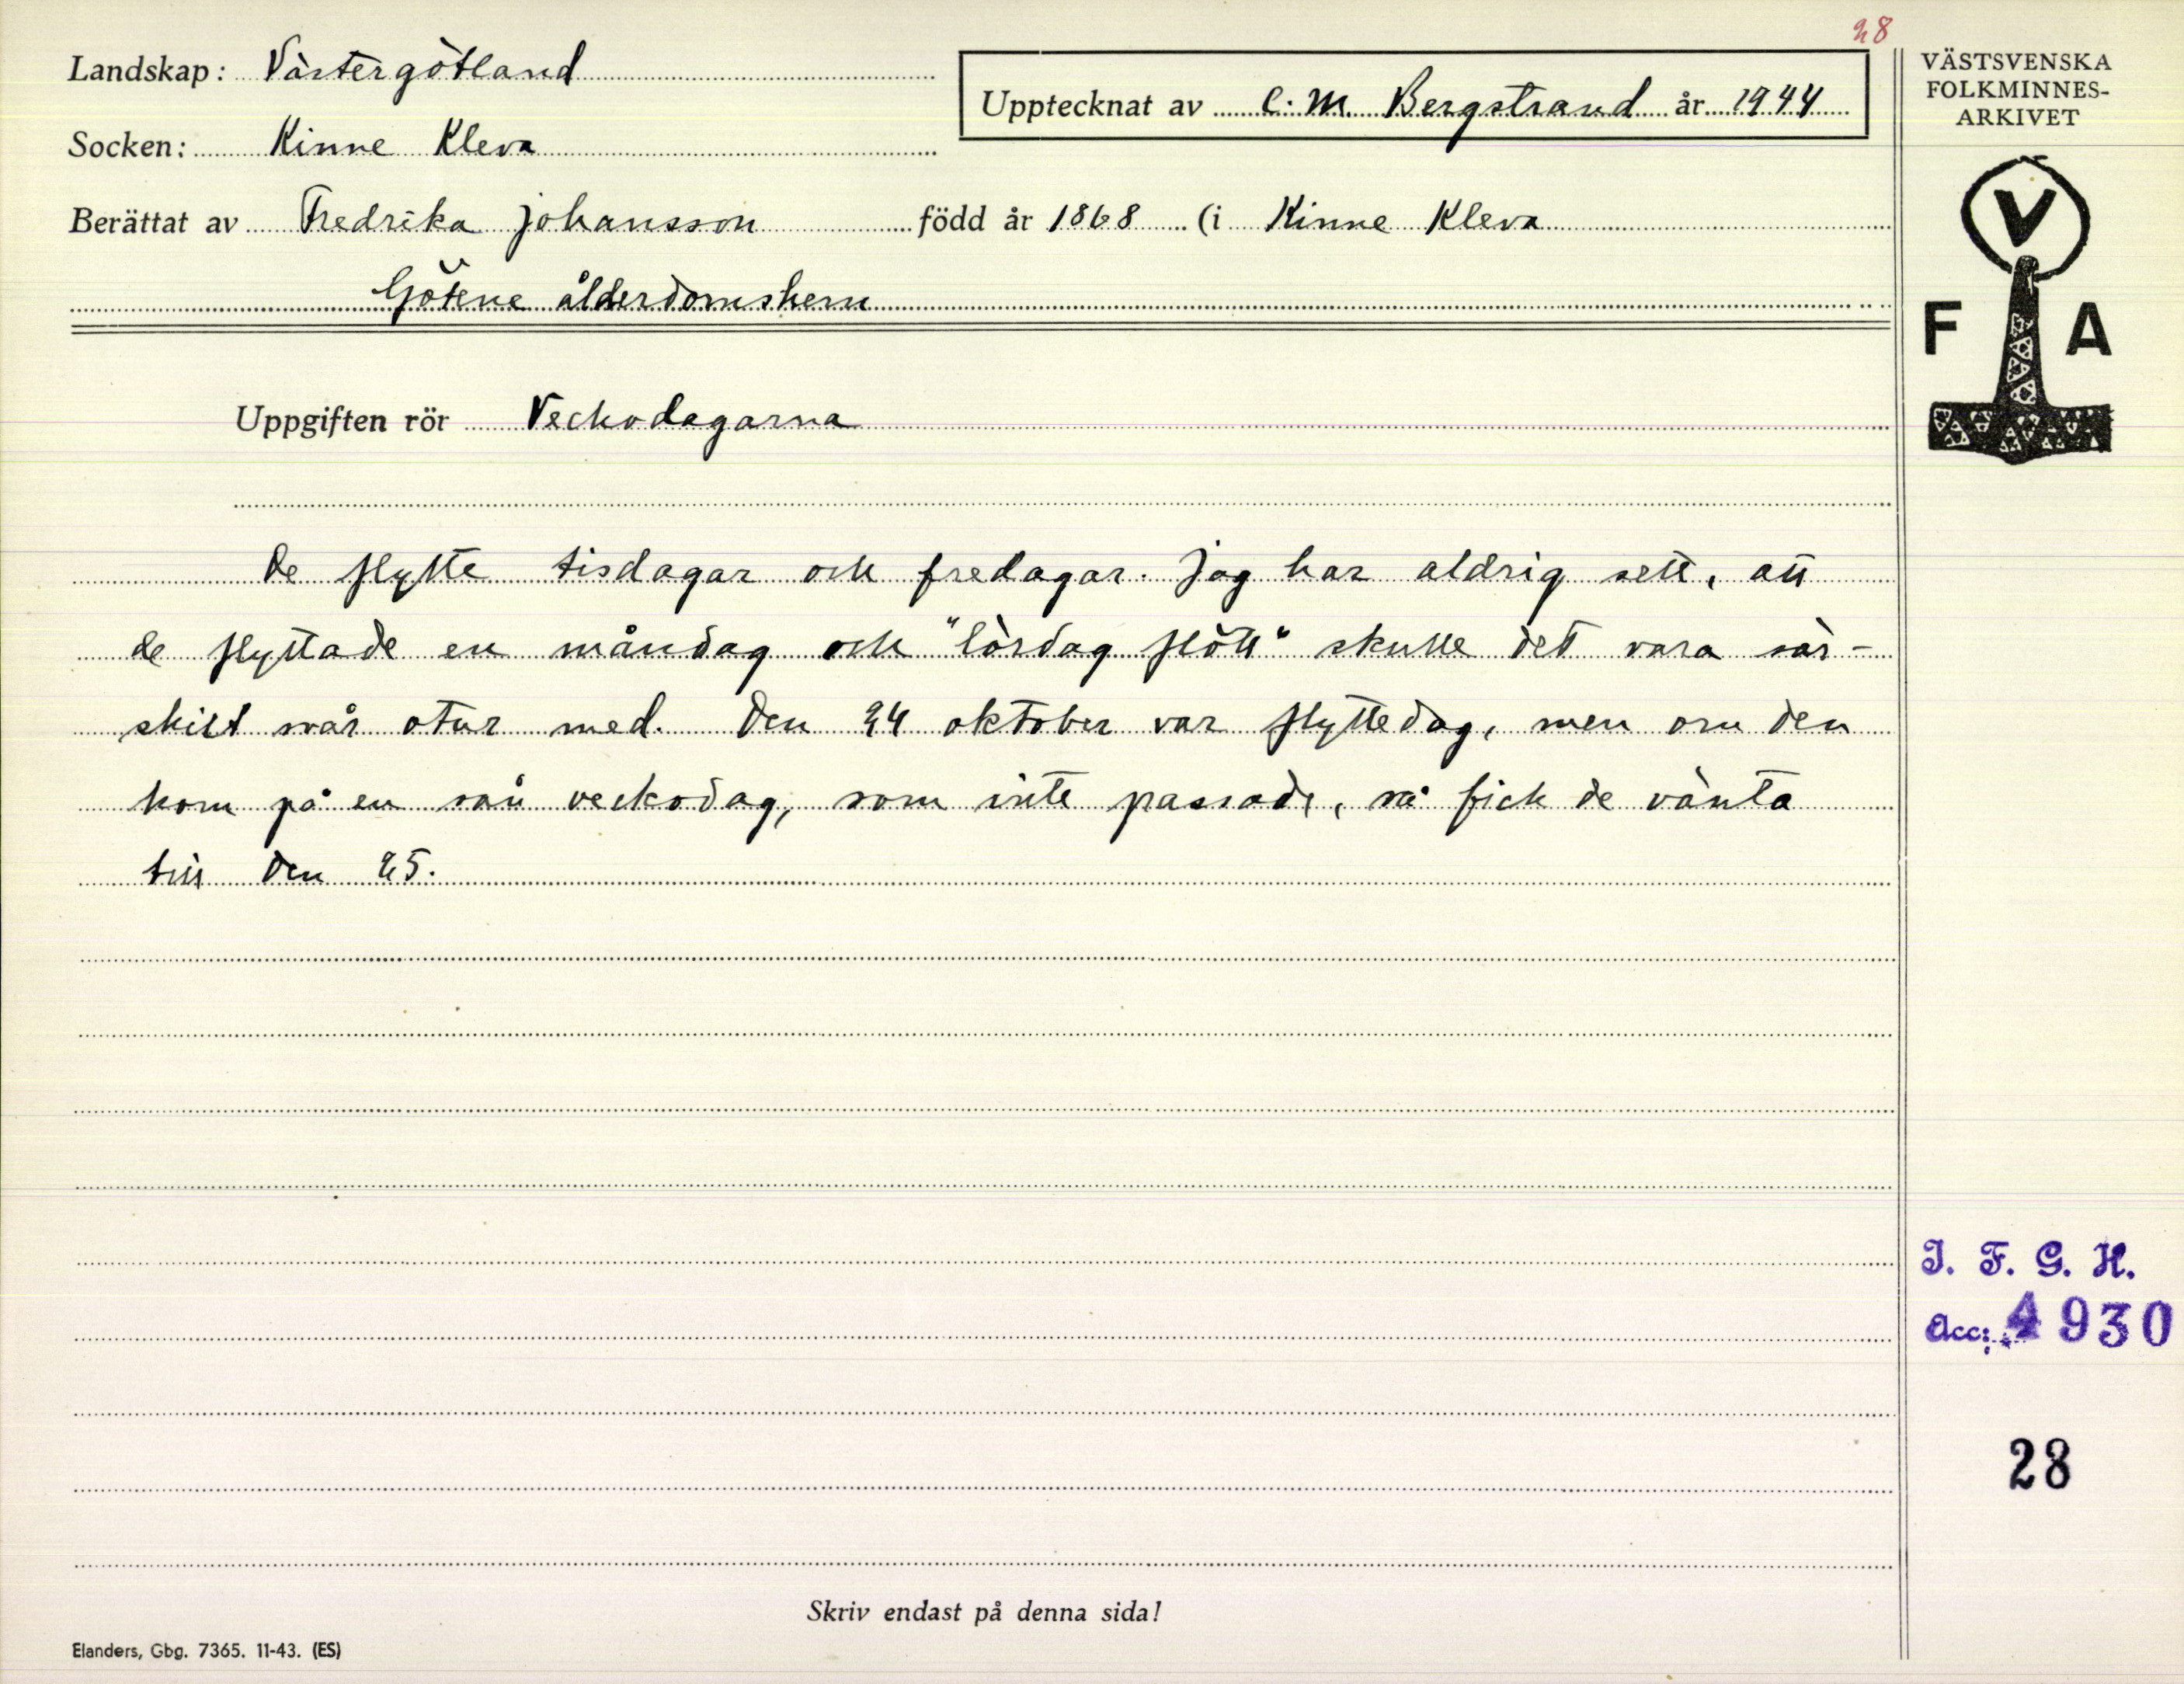 28
Landskap: Västergötland
Upptecknat av C. M. Bergstrand år 1944
Socken: Kinne Kleva
Berättat av Fredrika Johansson född år 1868 (i Kinne Kleva
Götene ålderdomshem
Uppgiften rör Veckodagarna
De flytte tisdagar och fredagar. Jag har aldrig sett, att
de flyttade en måndag och "lördag flött" skulle det vara sär-
skilt svår otur med. Den 24 oktober var flyttedag, men om den
kom på en sån veckodag, som inte passade, så fick de vänta
till den 25.
Skriv endast på denna sida!
Elanders, Gbg. 7365. 11-43. (ES)
VÄSTSVENSKA
FOLKMINNES-
ARKIVET
V
F A
I. F. G. H.
Acc: 4930
28